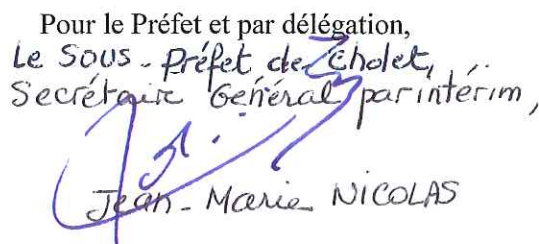 Pour le Préfet et par délégation,
Le Sous-préfet de Cholet,
Secrétaire Général par intérim,
Jean-Marie NICOLAS